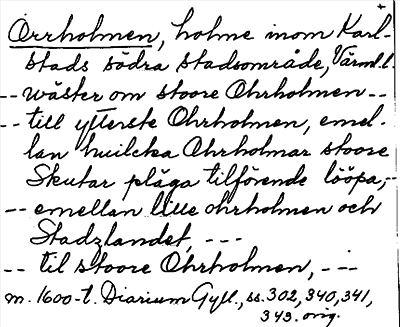 Orrholmen, holme inom Karl-
stads södra stadsområde, Värml.l.
-- wäster om stoore Ohrholmen --
-- till ytterste Ohrholmen, emel-
lan huilcka Ohrholmar stoore
Skutar pläga tilförende lööpa,--
-- emellan lille ohrholmen och
Stadzlandet, ---
-- til stoore Ohrholmen, ---
m. 1600-t. Diarium Gyll., ss. 302, 340, 341,
343. orig.